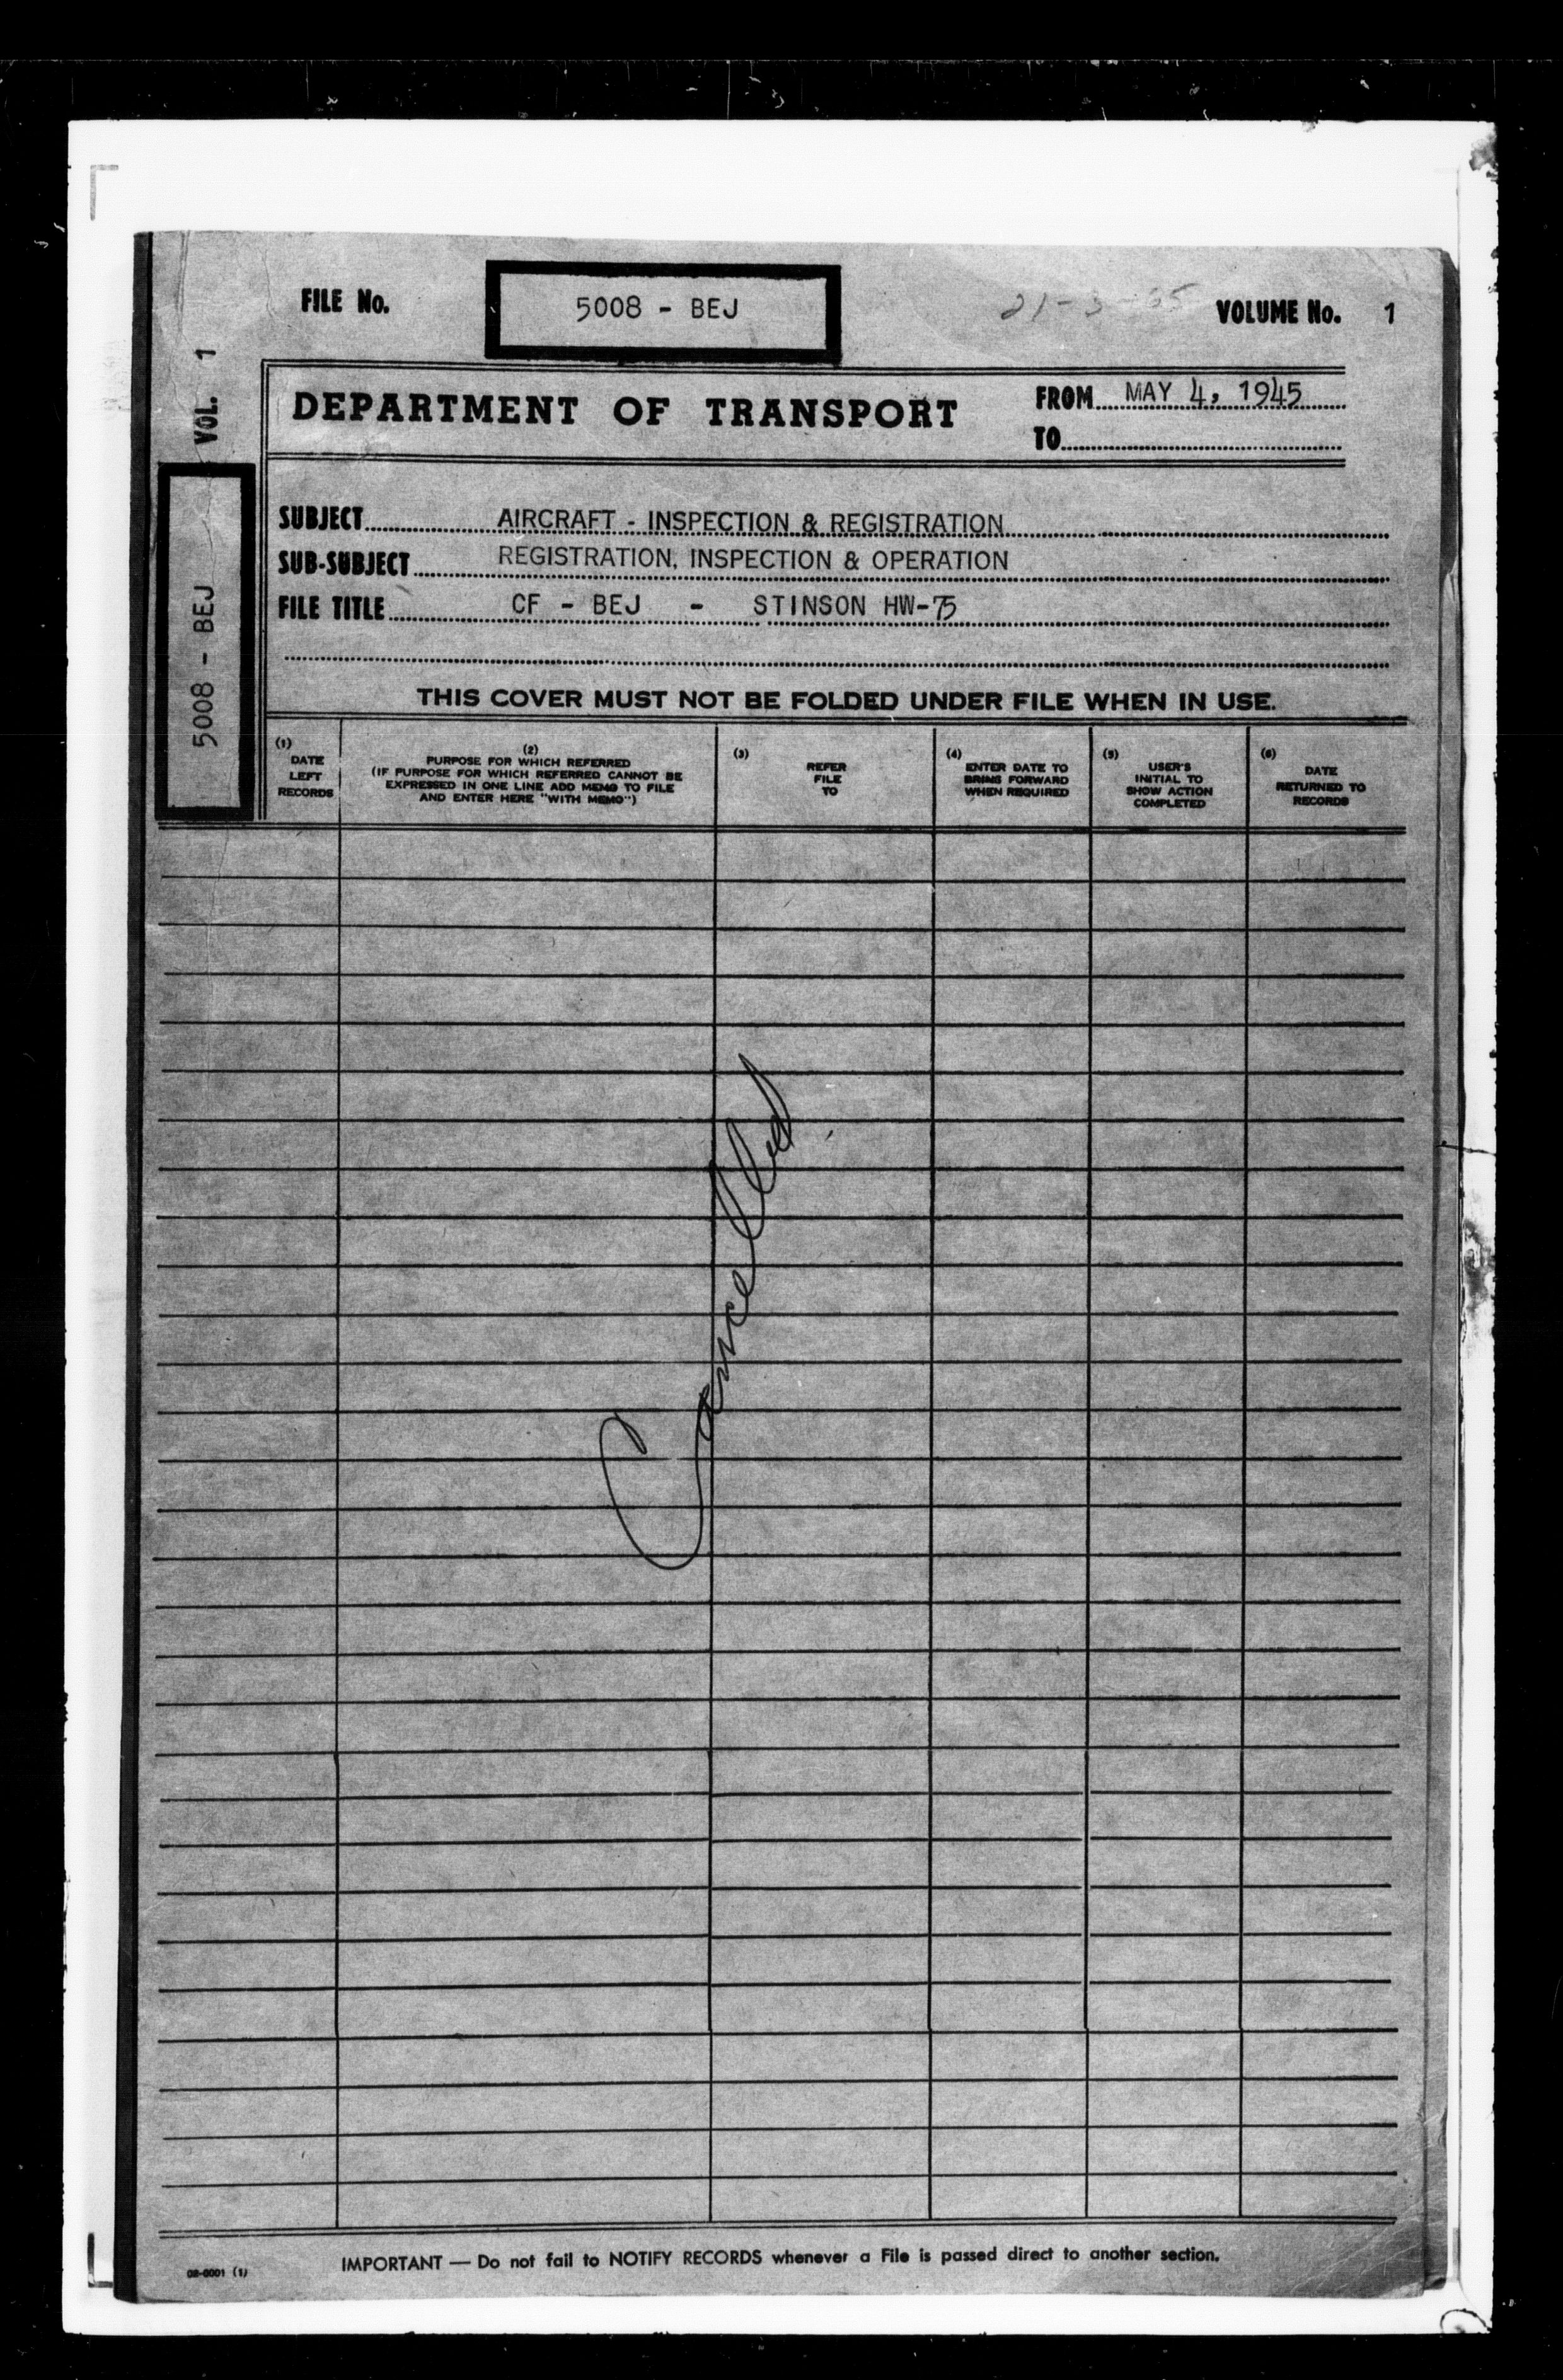 FILE No. 5008 - BEJ VOLUME No. 1
VOL. 1
5008 - BEJ
DEPARTMENT OF TRANSPORT
FROM MAY 4, 1945
TO
SUBJECT AIRCRAFT - INSPECTION & REGISTRATION
SUB-SUBJECT REGISTRATION, INSPECTION & OPERATION
FILE TITLE CF - BEJ - STINSON HW-75
THIS COVER MUST NOT BE FOLDED UNDER FILE WHEN IN USE.
(1)
DATE
LEFT
RECORDS
(2)
PURPOSE FOR WHICH REFERRED
(IF PURPOSE FOR WHICH REFERRED CANNOT BE
EXPRESSED IN ONE LINE ADD MEMO TO FILE
AND ENTER HERE "WITH MEMO")
(3)
REFER
FILE
TO
(4)
ENTER DATE TO
BRING FORWARD
WHEN REQUIRED
(5)
USER'S
INITIAL TO
SHOW ACTION
COMPLETED
(6)
DATE
RETURNED TO
RECORDS
Cancelled
IMPORTANT — Do not fail to NOTIFY RECORDS whenever a File is passed direct to another section.
08-0001 (1)